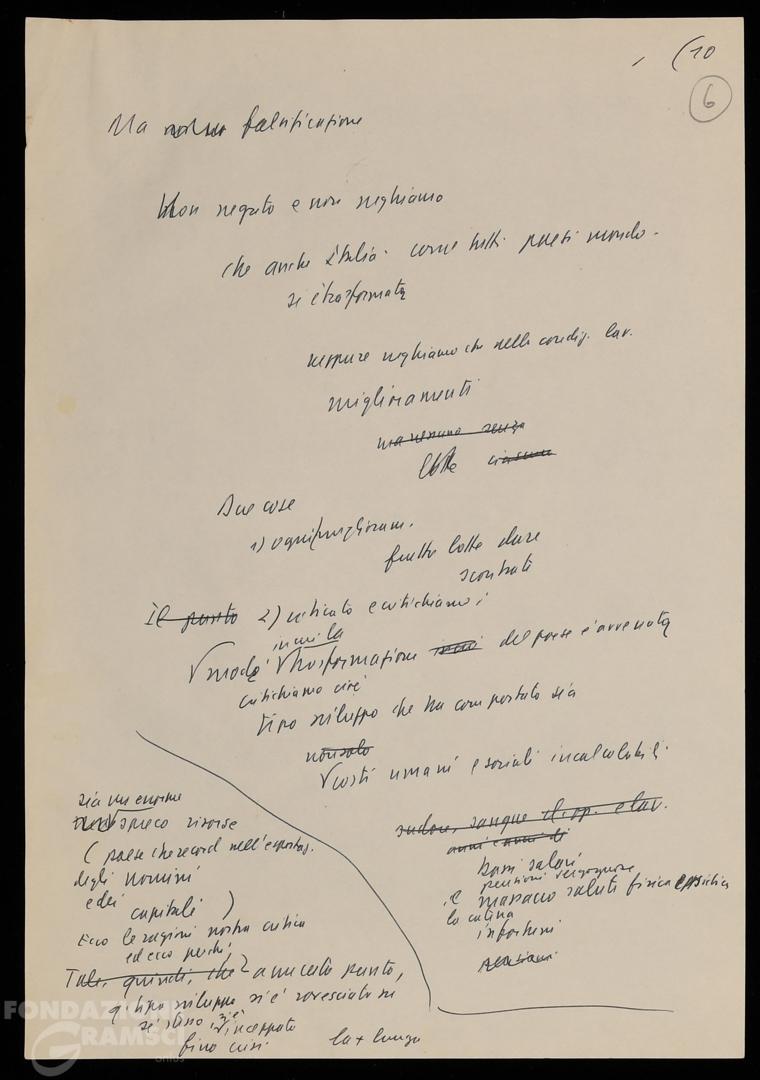 (10
6
Ma falsificazione
Non negato e non neghiamo
che anche Italia - come tutti paesi mondo -
si è trasformata
neppure neghiamo che nelle condiz. lav.
miglioramenti
ma nessuno senza
lotte
Due cose
1) ogni miglioram.
frutto lotte dure
scontrati
Il punto 2) criticato e critichiamo:
in cui la
modo trasformazione del paese è avvenuta
critichiamo cioè
tipo sviluppo che ha comportato sia
non solo
costi umani e sociali incalcolabili.
sudore, sangue d. pp. e lav.
anni e anni di
bassi salari
pensioni vergognose
il massacro salute fisica e psichica
la catena
infortuni
sia un enorme
spreco risorse
(paese che record nell'esportaz.
degli uomini
e dei capitali)
Ecco le ragioni nostra critica
ed ecco perché,
Tale, quindi, che a un certo punto,
q. tipo sviluppo si è rovesciato su
se stesso, si è inceppato
fino crisi la + lunga
FONDAZIONE
GRAMSCI
onlus